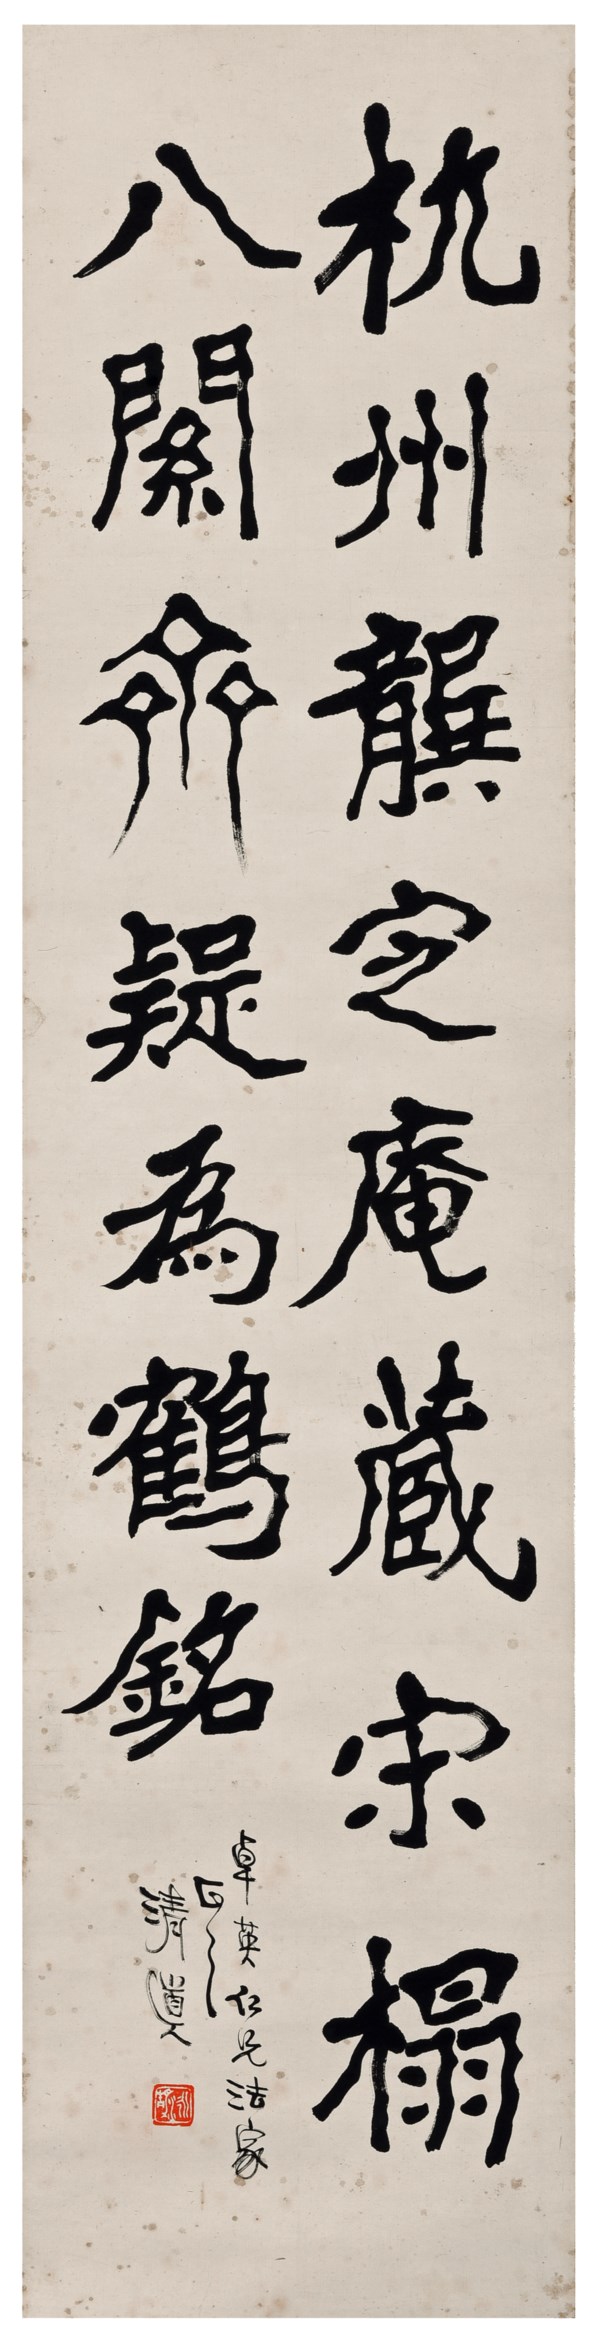 杭州龔定庵藏宋榻
八關齊疑為鶴銘
卓英仁兄法家
正之
清道人